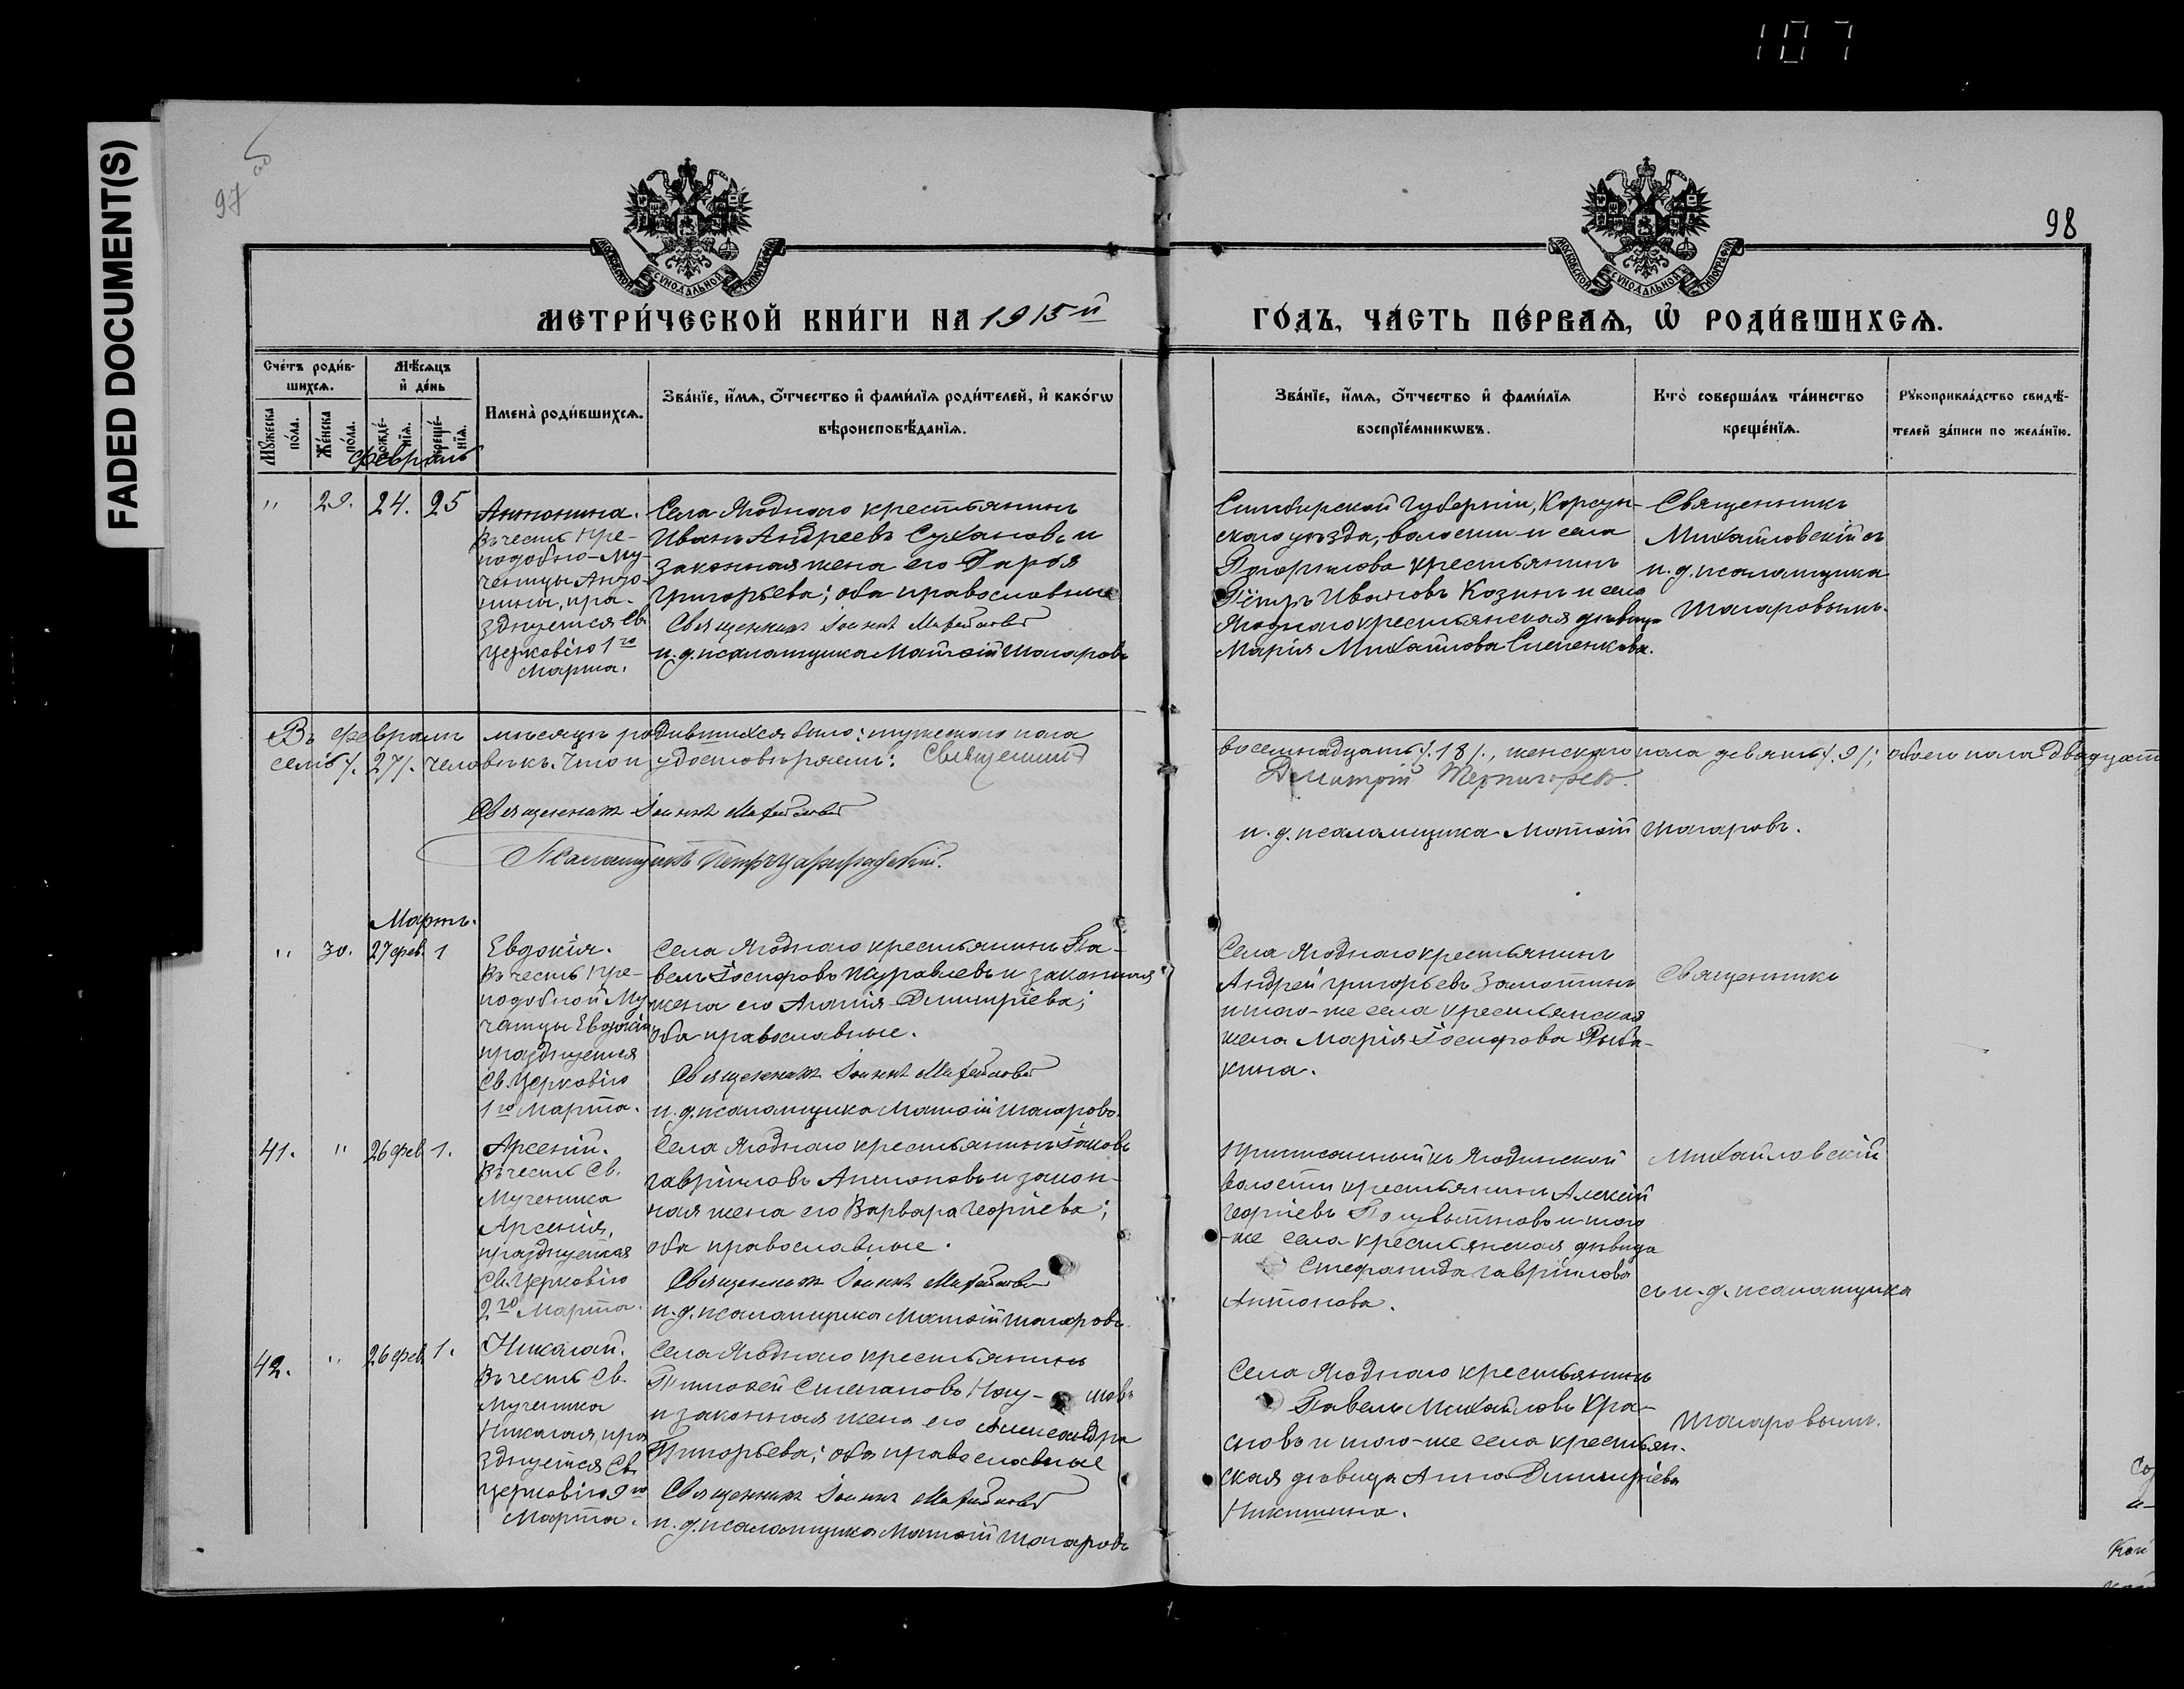 107
FADED DOCUMENT(S)
97 об
98
МОСКОВСКОЙ СѴНОДАЛЬНОЙ ТИПОГРАФІИ
МОСКОВСКОЙ СѴНОДАЛЬНОЙ ТИПОГРАФІИ
МЕТРИ́ЧЕСКОЙ КНИ́ГИ НА 1915й
ГО́ДЪ, ЧА́СТЬ ПЕ́РВАѦ, Ѡ РОДИ́ВШИХСѦ.
Сче́тъ роди́в-
шихсѧ.
Мѣ́сѧцъ
и҆ де́нь
Мꙋ́жеска по́ла.
Же́нска по́ла.
рожде́-
нїѧ.
креще́-
нїѧ.
И҆мена̀ роди́вшихсѧ.
Зва́нїе, и҆́мѧ, ѻ҆́тчество и҆ фами́лїѧ роди́телей, и҆ како́гѡ
вѣроисповѣ́данїѧ.
Зва́нїе, и҆́мѧ, ѻ҆́тчество и҆ фами́лїѧ
воспрїе́мникѡвъ.
Кто̀ соверша́лъ та́инство
креще́нїѧ.
Рꙋкоприкла́дство свидѣ́-
телей за́писи по жела́нїю.
Февраль
" 29. 24. 25
Антонина.
Въ честь Пре-
подобно-Му-
ченицы Анто-
нины, пра-
зднуется Св.
Церковію 1го
Марта.
Села Ягоднаго крестьянинъ
Иванъ Андреевъ Сухановъ и
законная жена его Дарья
Григорьева; оба православные
Священникъ Іоаннъ Михайловскій
и. д. псаломщика Матѳій Шагаровъ
Симбирской губерніи, Корсун-
скаго уѣзда, волости и села
Погорѣлова крестьянинъ
Пётръ Ивановъ Козинъ и села
Ягоднаго крестьянская дѣвица
Марія Михайлова Слепенкова.
Священникъ
Михайловскій съ
и. д. псаломщика
Шагаровымъ.
Въ февралѣ мѣсяцѣ родившихся было: мужескаго пола восемнадцать /.18/., женскаго пола девять /.9/; обоего пола двадцать
семь /.27/. человѣкъ. Что и удостовѣряемъ: Священникъ Димитрій Терпигоревъ.
Священникъ Іоаннъ Михайловскій
и. д. псаломщика Матѳій Шагаровъ.
Псаломщикъ Петръ
Мартъ.
" 30. 27 фев. 1
Евдокія.
Въ честь Пре-
подобной Му-
ченицы Евдокіи
празднуется
Св. Церковію
1го Марта.
Села Ягоднаго крестьянинъ Па-
велъ Іосифовъ Журавлевъ и законная
жена его Агапія Димитріева;
оба православные.
Священникъ Іоаннъ Михайловскій
и. д. псаломщика Матѳій Шагаровъ.
Села Ягоднаго крестьянинъ
Андрей Григорьевъ Замотинъ
и того-же села крестьянская
жена Марія Іосифова Рыба-
кина.
Священникъ
41. " 26 фев 1.
Арсеній.
Въ честь Св.
Мученика
Арсенія,
празднуется
Св. Церковію
2го Марта.
Села Ягоднаго крестьянинъ Іаковъ
Гавріиловъ Антоновъ и закон-
ная жена его Варвара Георгіева;
оба православные.
Священникъ Іоаннъ Михайловскій
и. д. псаломщика Матѳій Шагаровъ.
Приписанный къ Ягодинской
волости крестьянинъ Алексій
Георгіевъ и того
-же села крестьянская дѣвица
Стефанида Гавріилова
Антонова.
Михайловскій
съ и. д. псаломщика
42. " 26 фев. 1.
Николай.
Въ честь Св.
Мученика
Николая, пра
зднуется Св.
Церковію 9го
Марта.
Села Ягоднаго крестьянинъ
Тимоѳей Степановъ Нау- мовъ
и законная жена его Александра
Григорьева; оба православные
Священникъ Іоаннъ Михайловскій
и. д. псаломщика Матѳій Шагаровъ
Села Ягоднаго крестьянинъ
Павелъ Михайловъ Кра-
сновъ и того-же села крестьян-
ская дѣвица Анна Димитріева
Никишина.
Шагаровымъ.